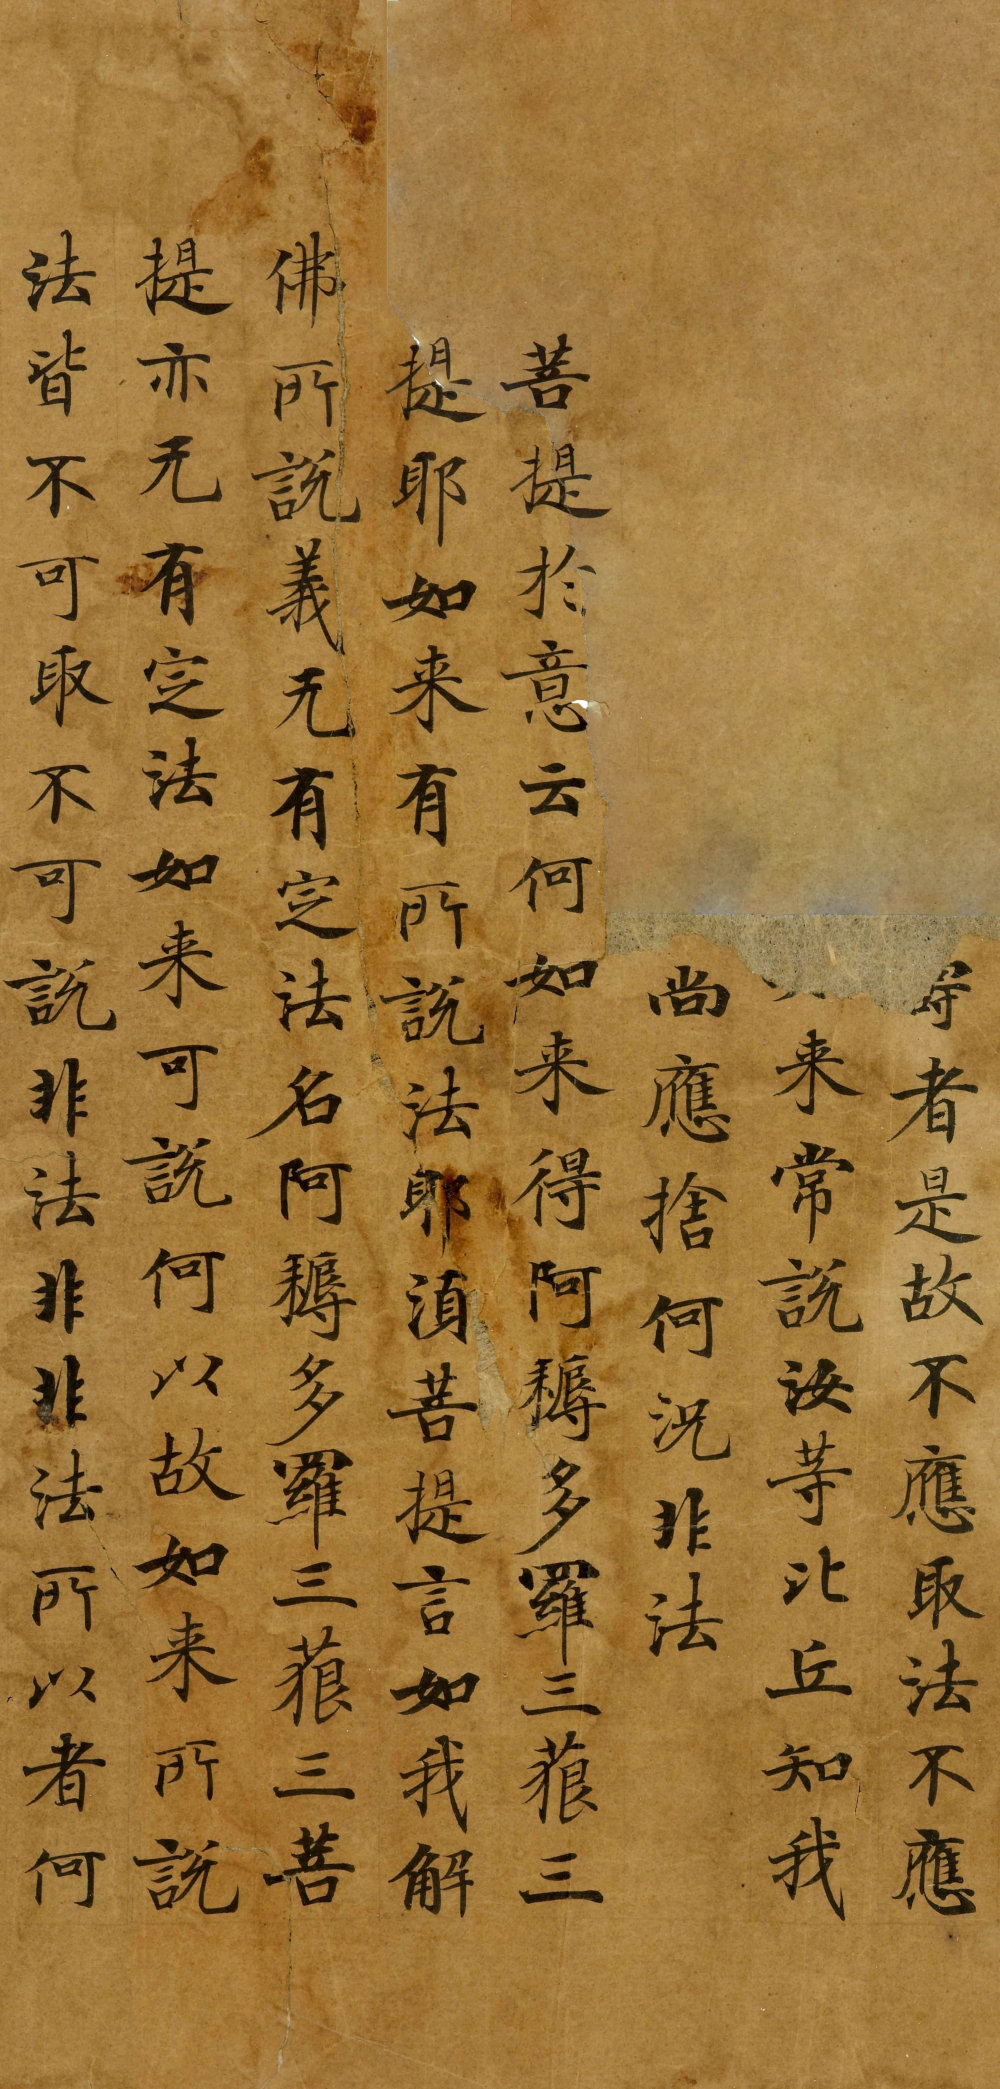 者是故不應取法不應
来常說汝等比丘知我
尚應捨何況非法
菩提於意云何如来得阿耨多羅三藐三
提耶如来有所說法耶湏菩提言如我解
佛所說義无有定法名阿耨多羅三藐三菩
提亦无有定法如来可說何以故如来所說
法皆不可取不可說非法非非法所以者何